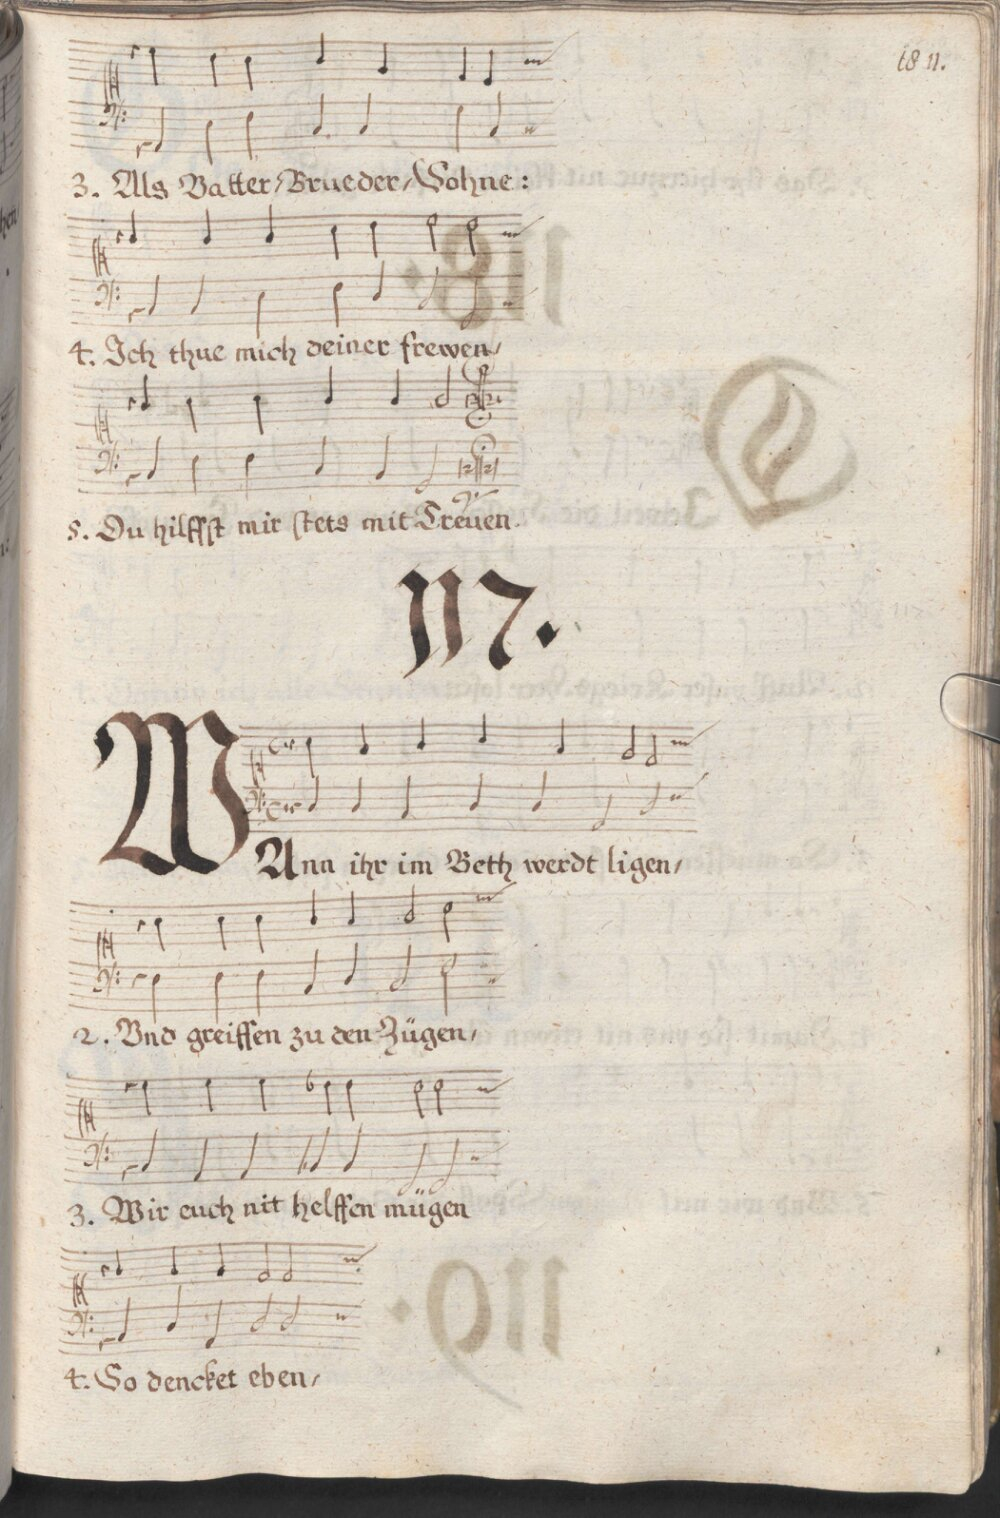 3. Als Vatter, Brueder, Sohne:
4. Ich thue mich deiner frewen,
5. Du hilffst mir stets mit Treuen.
117.
WAnn ihr im Beth werdt ligen,
2. Vnd greiffen zu den Zügen,
3. Wir euch nit helffen mügen
4. So dencket eben,